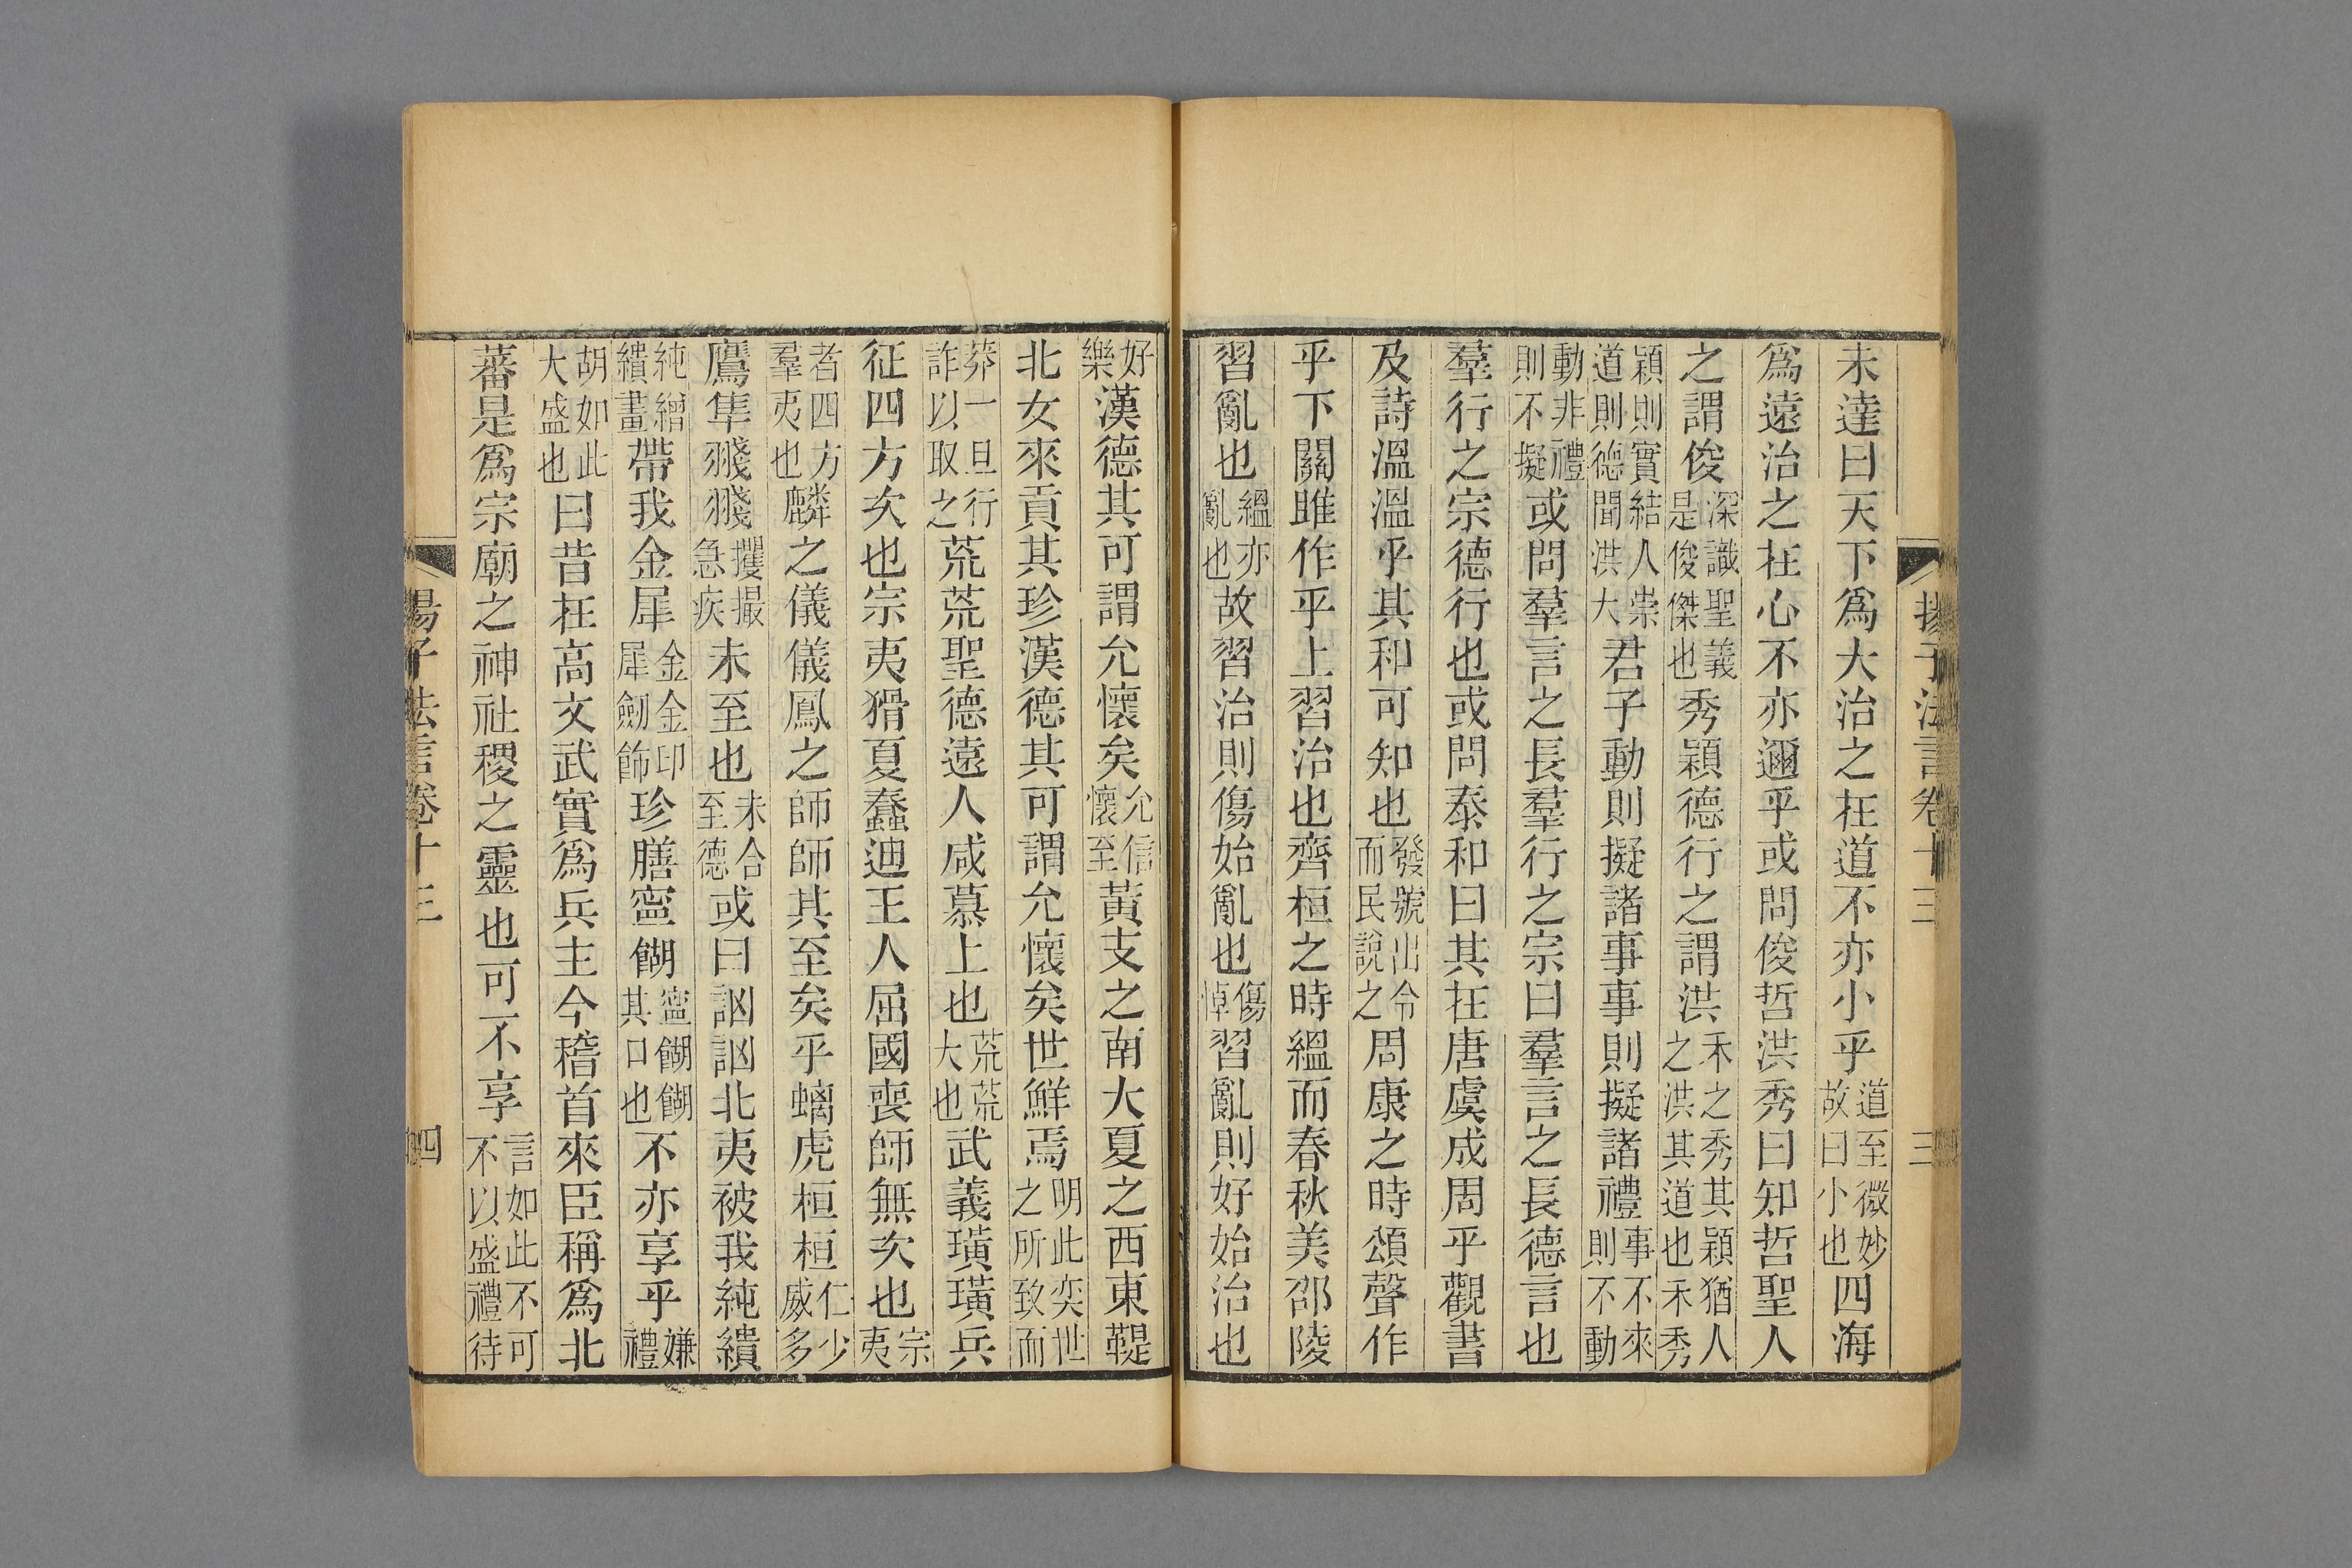 揚子法言卷十三 三
未達曰天下爲大治之在道不亦小乎道至微妙故曰小也四海
爲遠治之在心不亦邇乎或問俊哲洪秀曰知哲聖人
之謂俊深識聖義是俊傑也秀穎德行之謂洪禾之秀其穎猶人之洪其道也禾秀
穎則實結人崇道則德聞洪大君子動則擬諸事事則擬諸禮事不來則不動
動非禮則不擬或問羣言之長羣行之宗曰羣言之長德言也
羣行之宗德行也或問泰和曰其在唐虞成周乎觀書
及詩溫溫乎其和可知也發號出令而民說之周康之時頌聲作
乎下關雎作乎上習治也齊桓之時縕而春秋美邵陵
習亂也縕亦亂也故習治則傷始亂也傷悼習亂則好始治也
好樂漢德其可謂允懷矣允信懷至黃支之南大夏之西東鞮
北女來貢其珍漢德其可謂允懷矣世鮮焉明此奕世之所致而
莽一旦行詐以取之荒荒聖德遠人咸慕上也荒荒大也武義璜璜兵
征四方次也宗夷猾夏蠢迪王人屈國喪師無次也宗夷
者四方羣夷也麟之儀儀鳳之師師其至矣乎螭虎桓桓仁少威多
鷹隼䎒䎒攫撮急疾未至也未合至德或曰訩訩北夷被我純繢
純繒繢畫帶我金犀金金印犀劒飾珍膳寍餬寍餬餬其口也不亦享乎嫌禮
胡如此大盛也曰昔在高文武實爲兵主今稽首來臣稱爲北
蕃是爲宗廟之神社稷之靈也可不享言如此不可不以盛禮待
揚子法言卷十三 四